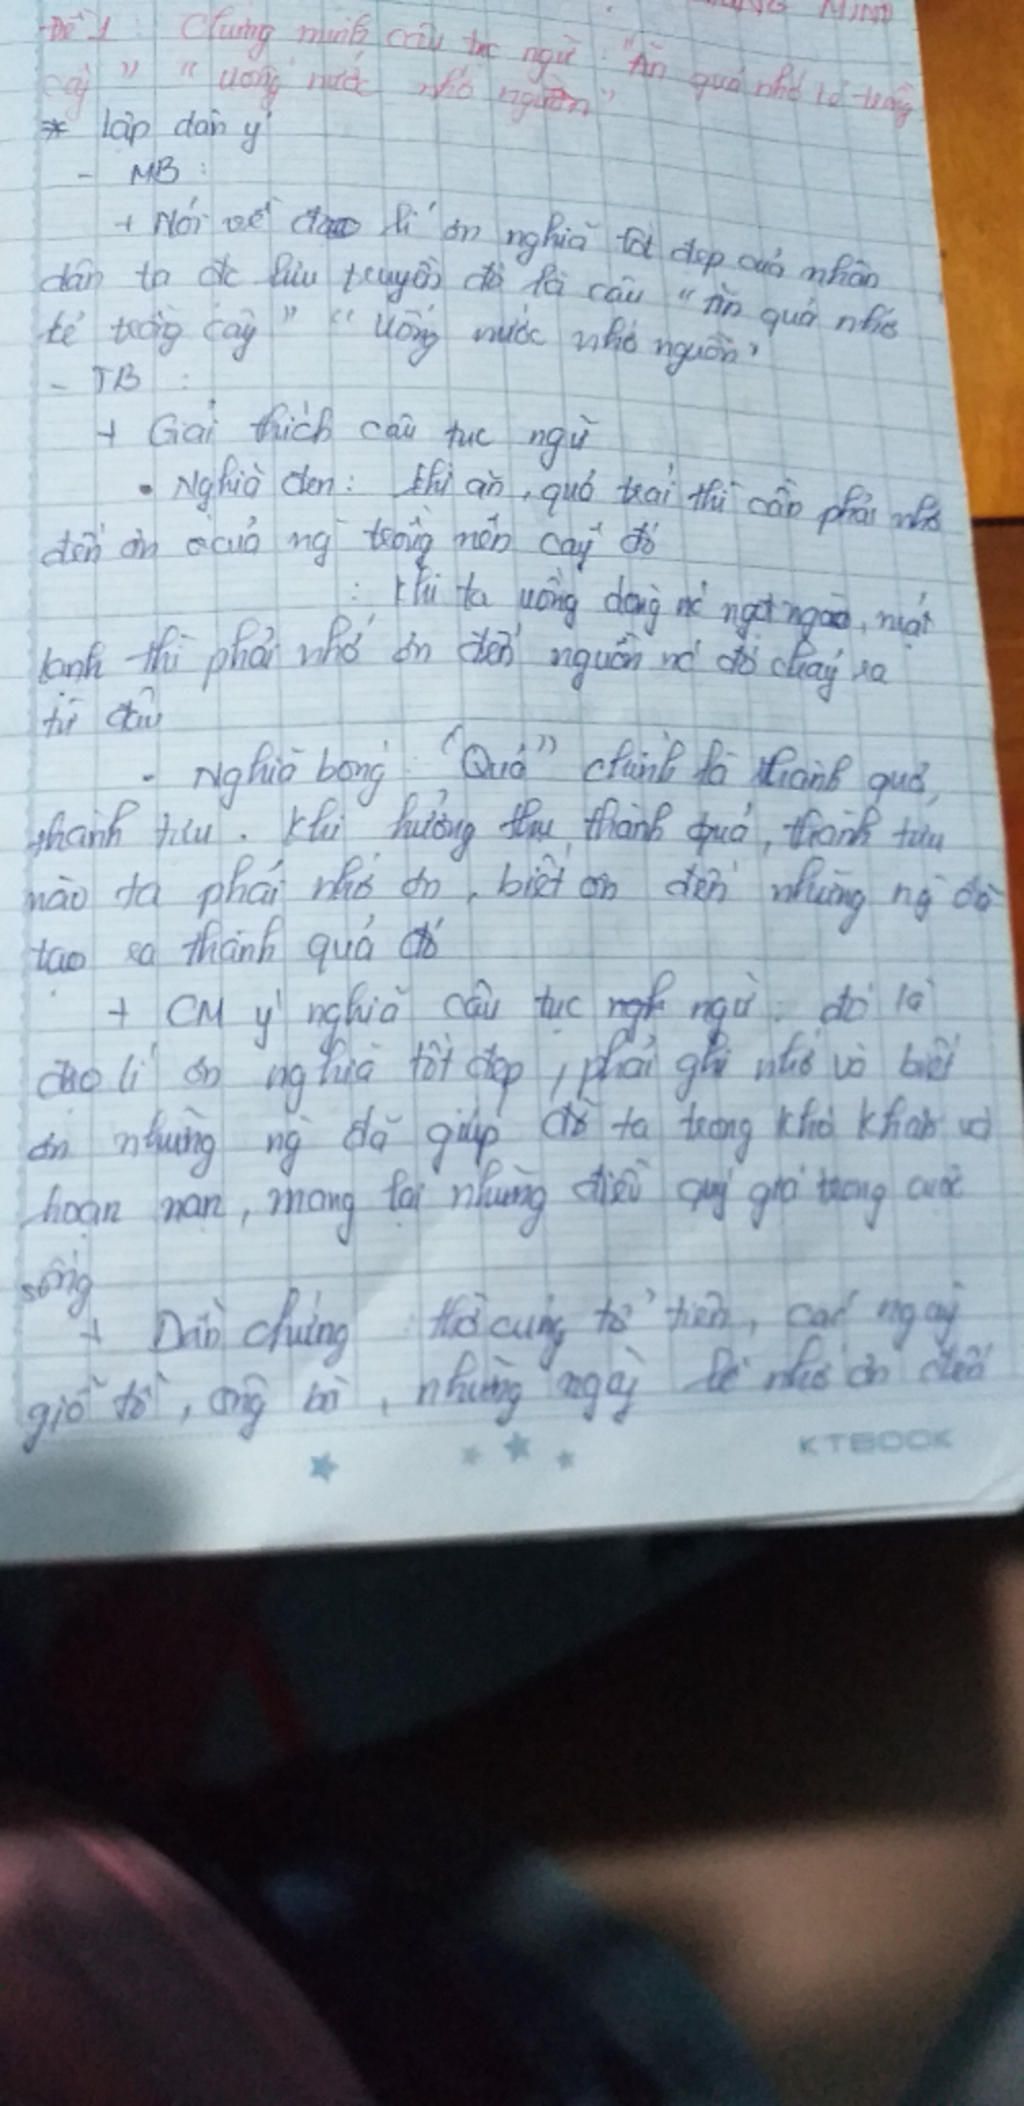 MINH
Đề 1: Chứng minh câu tục ngữ: "Ăn quả nhớ kẻ trồng
cây" "Uống nước nhớ nguồn"
* Lập dàn ý
- MB:
+ Nói về đạo lí ơn nghĩa tốt đẹp của nhân
dân ta đc lưu truyền đó là câu "Ăn quả nhớ
kẻ trồng cây" "Uống nước nhớ nguồn"
- TB:
+ Giải thích câu tục ngữ
• Nghĩa đen: Khi ăn, quả trái thì cần phải nhớ
đến ơn của ng trồng nên cây đó
: Khi ta uống dòng nc ngọt ngào, mát
lành thì phải nhớ ơn đến nguồn nc đó chảy ra
từ đâu
- Nghĩa bóng: "Quả" chính là thành quả,
thành tựu. Khi hưởng thụ thành quả, thành tựu
nào ta phải nhớ ơn, biết ơn đến những ng đã
tạo ra thành quả đó
+ CM ý nghĩa câu tục ngữ: đó là
đạo lí ơn nghĩa tốt đẹp, phải ghi nhớ và biết
ơn những ng đã giúp đỡ ta trong khó khăn và
hoạn nạn, mang lại những điều quý giá trong cuộc
sống
+ Dẫn chứng: thờ cúng tổ tiên, các ngày
giỗ tổ, ông bà, những ngày lễ nhớ ơn đến
KTBOOK